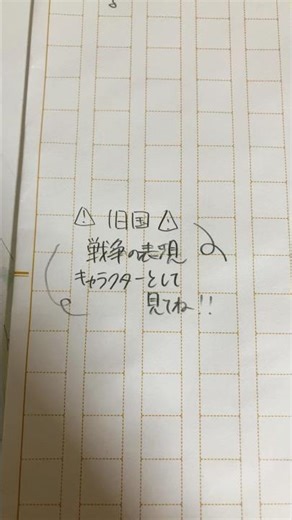 ⚠ 旧国 ⚠
戦争の表現
キャラクターとして
見てね!!